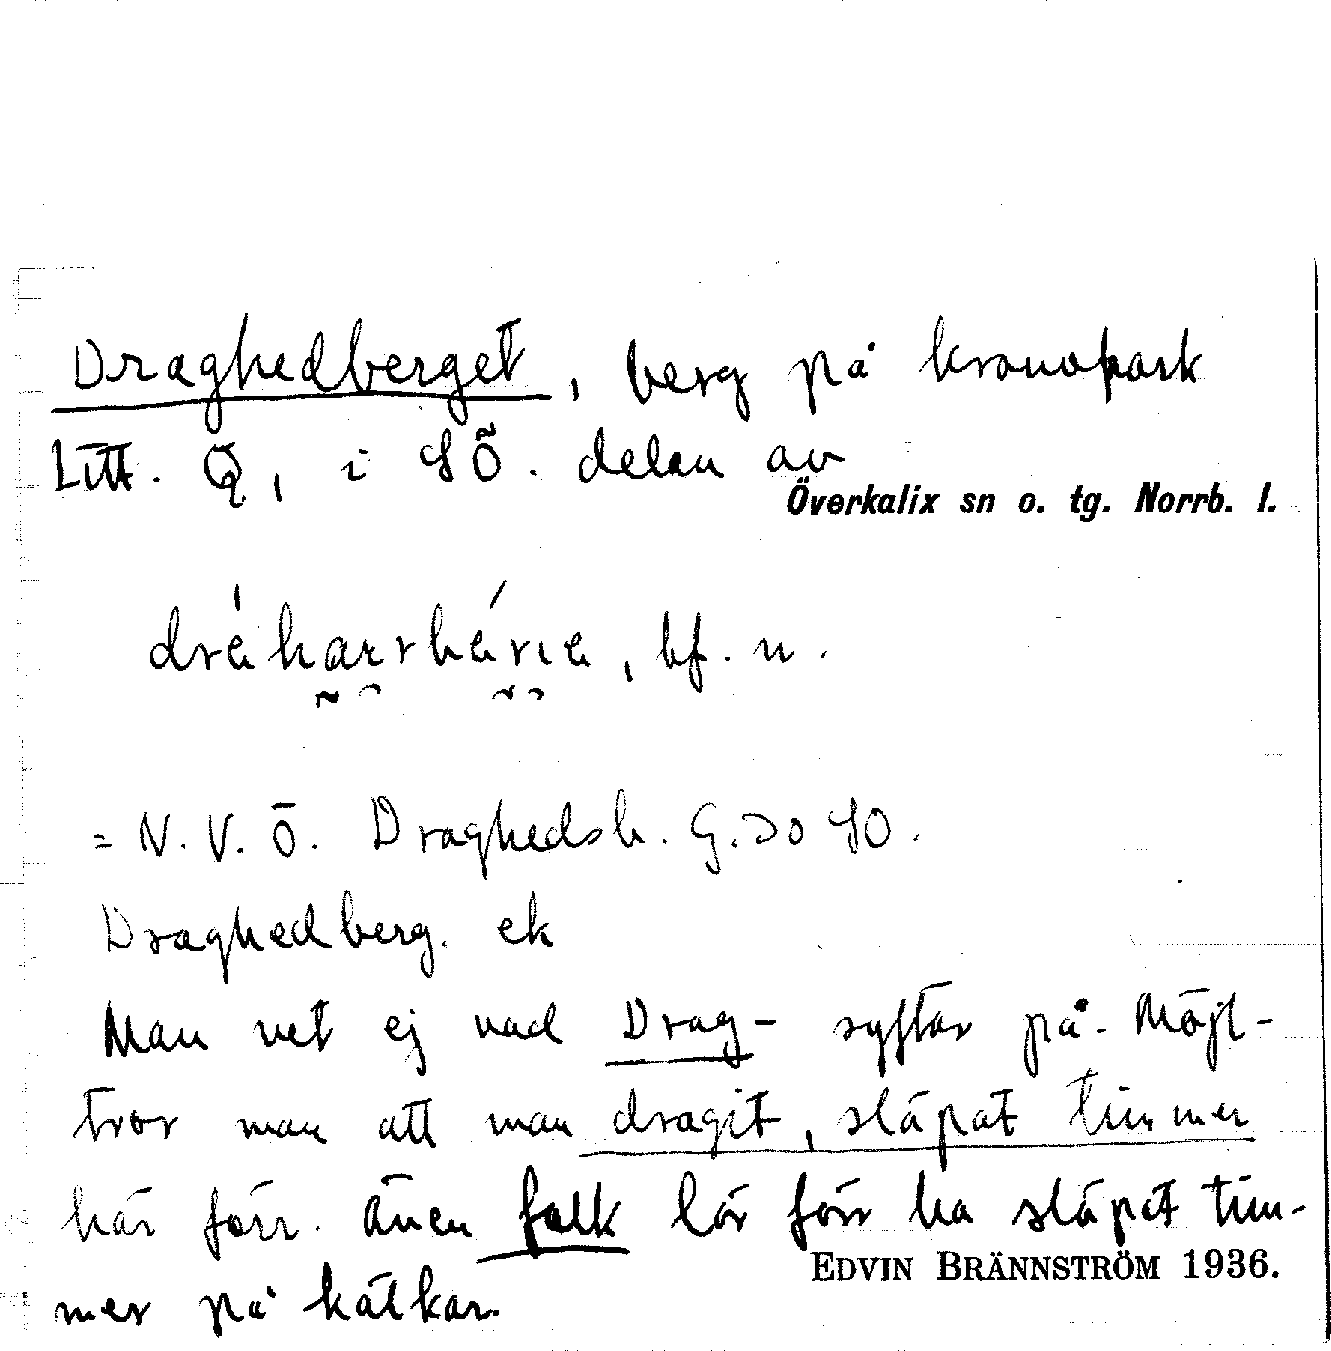 Draghedberget, berg på kronopark
Litt. Q, i SÖ. delen av
Överkalix sn o. tg. Norrb. l.
bf. n.
= N. V. Ö. Draghedsb. G. SO.
Draghedberg. ek
Man vet ej vad Drag- syftar på. Möjl-
tror man att man dragit, släpat timmer
här förr. Även folk lär förr ha släpat tim-
EDVIN BRÄNNSTRÖM 1936.
mer på kälkar.